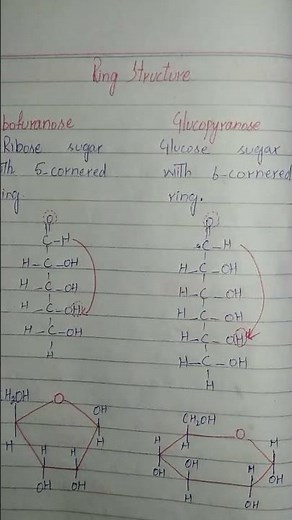 Ring Structure
bofuranose
Ribose sugar
th 5-cornered
ing
O
C-H
H-C-OH
H-C-OH
H-C-OH
H-C-OH
H
H2OH
O
OH
H
H
H
H
OH
OH
Glucopyranose
Glucose sugar
with 6-cornered
ring.
O
C-H
H-C-OH
H-C-OH
H-C-OH
H-C-OH
H-C-OH
H
CH2OH
O
H
H
H
H
OH
OH
H
OH
OH